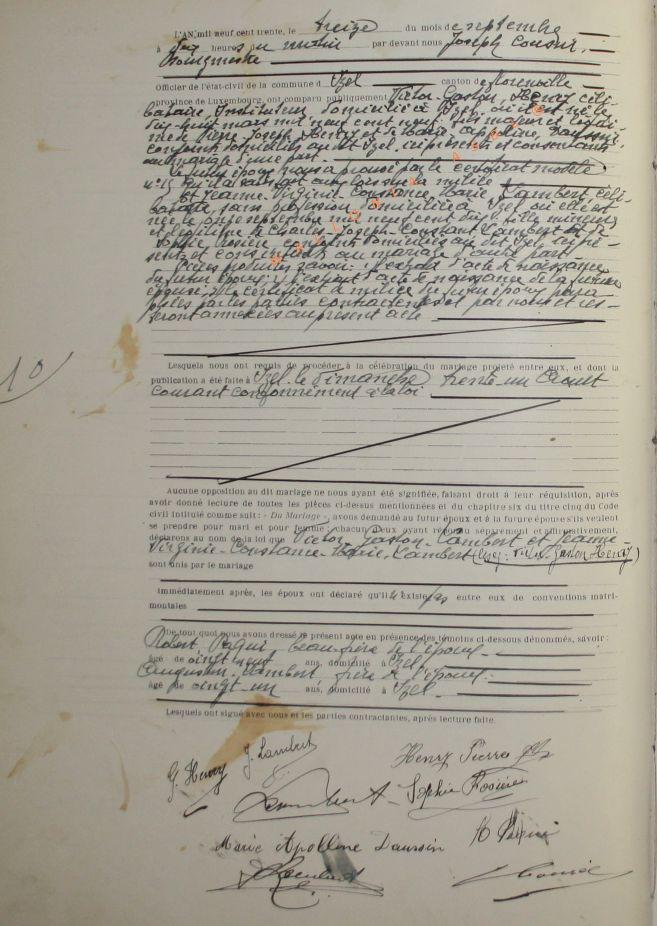 L'AN, mil neuf cent trente, le treize du mois de septembre
à dix heures du matin par devant nous Joseph
Bourgmestre
Officier de l'état-civil de la commune d Izel canton de Florenville
province de Luxembourg, ont comparu publiquement Victor-Gaston, Henry céli-
bataire, Instituteur domicilié à Izel où il est né le
dix-huit mars mil neuf cent neuf, fils majeur et légi
time de Pierre Joseph Henry et de Marie Apolline,
conjoints domiciliés au dit Izel, ci présents et consentants
au mariage d'une part.
Le futur époux nous a prouvé par le certificat modèle
n° 15 qu'il a satisfait aux lois sur la milice
et Jeanne-Virginie-Constance, Marie, Lambert céli-
bataire, sans profession domiciliée à Izel où elle est
née le onze septembre mil neuf cent dix, fille mineure
et légitime de Charles-Joseph-Constant Lambert et de
Sophie, Rosière conjoints domiciliés au dit Izel, ci pré-
sents et consentants au mariage d'autre part
Pièces produites savoir: 1° l'extrait d'acte de naissance
du futur époux; 2° l'extrait d'acte de naissance de la future
épouse; 3° le certificat de milice du futur époux
par les parties contractantes et par nous et res-
teront annexées au présent acte
10
Lesquels nous ont requis de procéder à la célébration du mariage projeté entre eux, et dont la
publication a été faite à Izel le Dimanche trente-un Août
courant conformément à la loi
Aucune opposition au dit mariage ne nous ayant été signifiée, faisant droit à leur réquisition, après
avoir donné lecture de toutes les pièces ci-dessus mentionnées et du chapitre six du titre cinq du Code
civil intitulé comme suit: « Du Mariage », avons demandé au futur époux et à la future épouse s'ils veulent
se prendre pour mari et pour femme; chacun d'eux ayant répondu séparément et affirmativement,
déclarons au nom de la loi que Victor-Gaston-Lambert et Jeanne-
Virginie-Constance-Marie, Lambert (lisez: Victor Gaston Henry)
sont unis par le mariage
Immédiatement après, les époux ont déclaré qu'il n'existe pas entre eux de conventions matri-
moniales
De tout quoi nous avons dressé le présent acte en présence des témoins ci-dessous dénommés, savoir:
Robert, Paqui, beau-frère de l'époux
âgé de vingt neuf ans, domicilié à Izel
Lambert, frère de l'épouse
âgé de vingt-un ans, domicilié à Izel.
Lesquels ont signé avec nous et les parties contractantes, après lecture faite.
G. Henry J. Lambert Henry Pierre
Lambert Sophie Rosière
Marie Apolline R Paqui